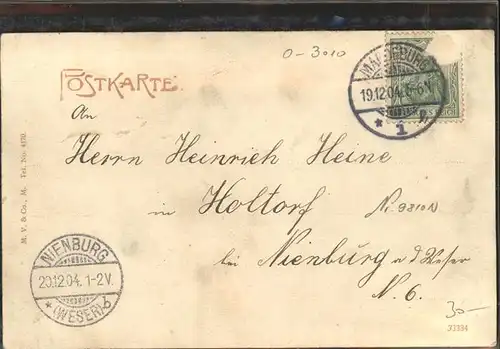 O-3010
POSTKARTE.
MAGDEBURG
19.12.04. 6-6N.
* 1
An
Herrn Heinrich Heine
in Holtorf
Ni 9310N
bei Nienburg a d Weser
N. 6.
M. V. & Co., M. Tet. No.
NIENBURG
20.12.04. 1-2V.
* (WESER) b
30-